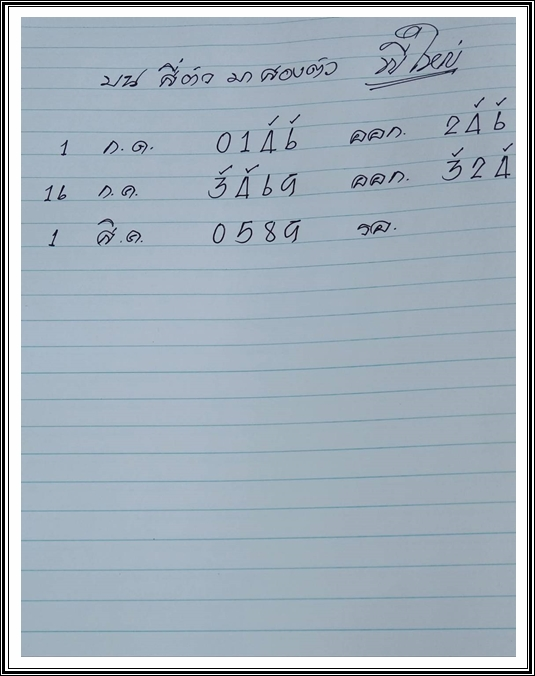 บน สี่ตัว มาสองตัว พี่ใหญ่
1 ก.ค. 0146 ออก. 246
16 ก.ค. 3469 ออก. 324
1 ส.ค. 0589 รอ.